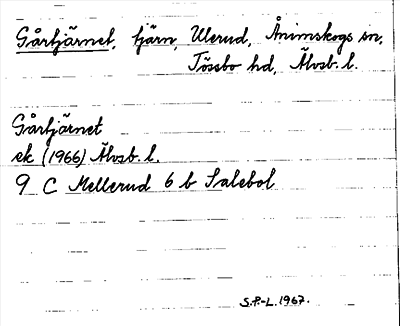 Gårtjärnet, tjärn, Ulerud, Ånimskogs sn,
Tössbo hd, Älvsb. l.
Gårtjärnet
ek (1966) Älvsb. l.
9 C Mellerud 6 b Salebol
S.P.-L. 1967.